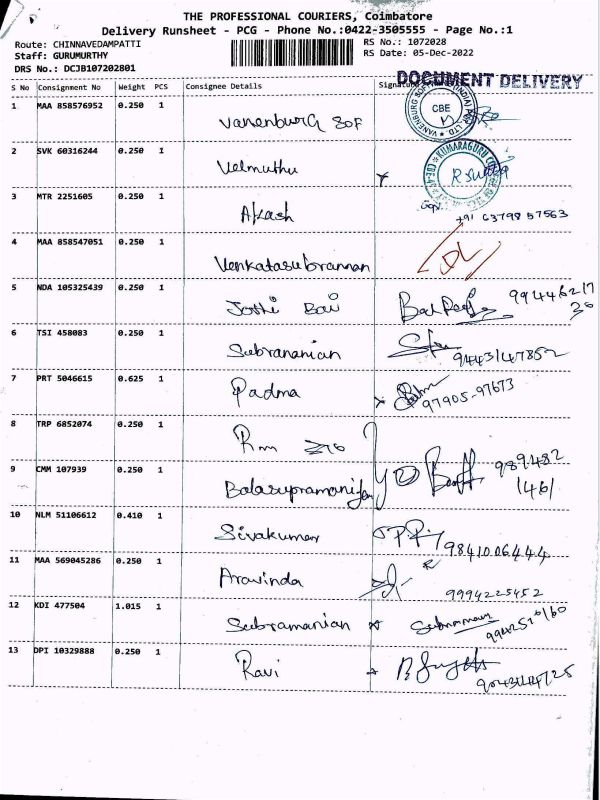 THE PROFESSIONAL COURIERS, Coimbatore
Delivery Runsheet - PCG - Phone No.:0422-3505555 - Page No.:1
Route: CHINNAVEDAMPATTI
Staff: GURUMURTHY
DRS No.: DCJB107202801
RS No.: 1072028
RS Date: 05-Dec-2022
DOCUMENT DELIVERY
S No Consignment No Weight PCS Consignee Details Signature
1 MAA 858576952 0.250 1 Vanenburg Sof
CBE
2 SVK 60316244 0.250 1 Velmuthu
KUMARAGURU
3 MTR 2251605 0.250 1 Akash +91 63798 57563
4 MAA 858547051 0.250 1 Venkatasubramanan
5 NDA 105325439 0.250 1 Jothi Bai
6 TSI 458083 0.250 1 Subramanian 9443147852
7 PRT 5046615 0.625 1 Padma 97905-97673
8 TRP 6852074 0.250 1
9 CMM 107939 0.250 1 Balasupramaniyan 989482 1461
10 NLM 51106612 0.410 1 Sivakumar 9841006444
11 MAA 569045286 0.250 1 Aravinda 9994225452
12 KDI 477504 1.015 1 Subramanian
13 DPI 10329888 0.250 1 Ravi